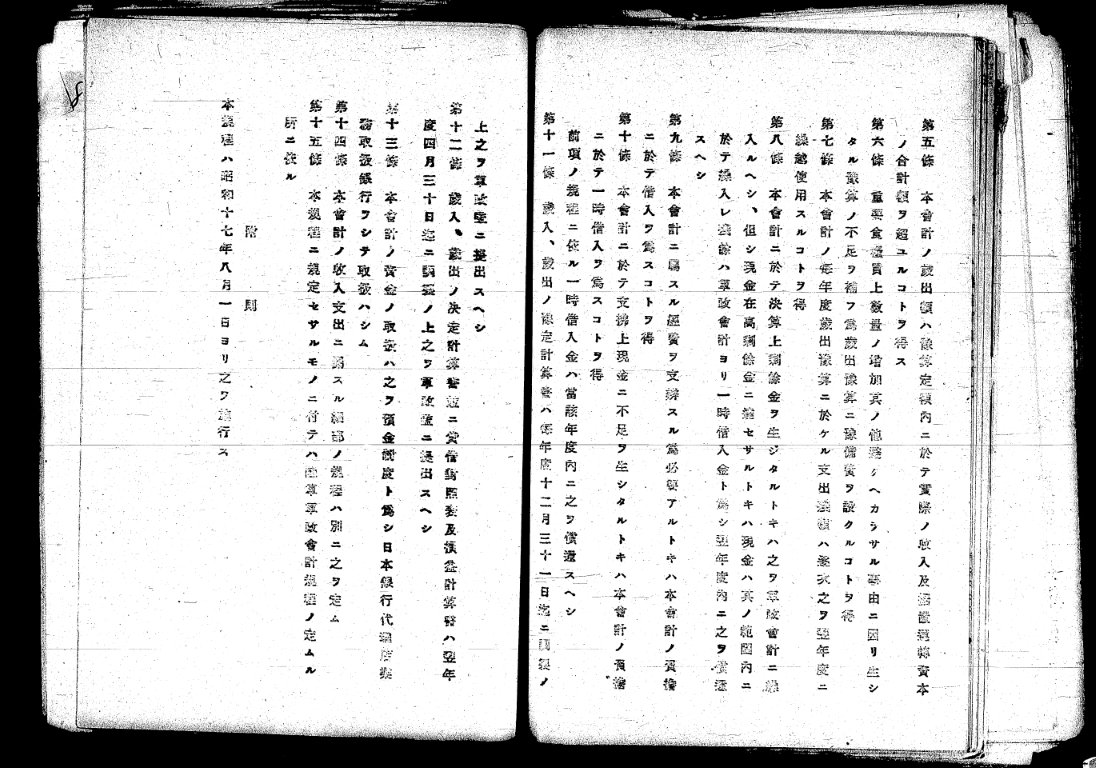 第五條　本會計ノ歲出額ハ豫算定額內ニ於テ實際ノ收入及據置運轉資本
ノ合計額ヲ超ユルコトヲ得ス
第六條　重要食糧買上數量ノ增加其ノ他避クヘカラサル事由ニ因リ生シ
タル豫算ノ不足ヲ補フ爲歲出豫算ニ豫備費ヲ設クルコトヲ得
第七條　本會計ノ每年度歲出豫算ニ於ケル支出殘額ハ逐次之ヲ翌年度ニ
繰越使用スルコトヲ得
第八條　本會計ニ於テ決算上剩餘金ヲ生ジタルトキハ之ヲ軍政會計ニ繰
入ルヘシ、但シ現金在高剩餘金ニ達セサルトキハ現金ハ其ノ範圍內ニ
於テ繰入レ殘餘ハ軍政會計ヨリ一時借入金ト爲シ翌年度內ニ之ヲ償還
スヘシ
第九條　本會計ニ屬スル經費ヲ支辨スル爲必要アルトキハ本會計ノ負擔
ニ於テ借入ヲ爲スコトヲ得
第十條　本會計ニ於テ支拂上現金ニ不足ヲ生シタルトキハ本會計ノ負擔
ニ於テ一時借入ヲ爲スコトヲ得
前項ノ規程ニ依ル一時借入金ハ當該年度內ニ之ヲ償還スヘシ
第十一條　歲入、歲出ノ豫定計算書ハ每年度十二月三十一日迄ニ調製ノ
上之ヲ軍政監ニ提出スヘシ
第十二條　歲入、歲出ノ決定計算書竝ニ貸借對照表及損益計算書ハ翌年
度四月三十日迄ニ調製ノ上之ヲ軍政監ニ提出スヘシ
第十三條　本會計ノ資金ノ取扱ハ之ヲ預金制度ト爲シ日本銀行代理店業
務取扱銀行ヲシテ取扱ハシム
第十四條　本會計ノ收入支出ニ關スル細部ノ規程ハ別ニ之ヲ定ム
第十五條　本規程ニ規定セサルモノニ付テハ陸軍軍政會計規程ノ定ムル
所ニ依ル
附則
本規程ハ昭和十七年八月一日ヨリ之ヲ施行ス